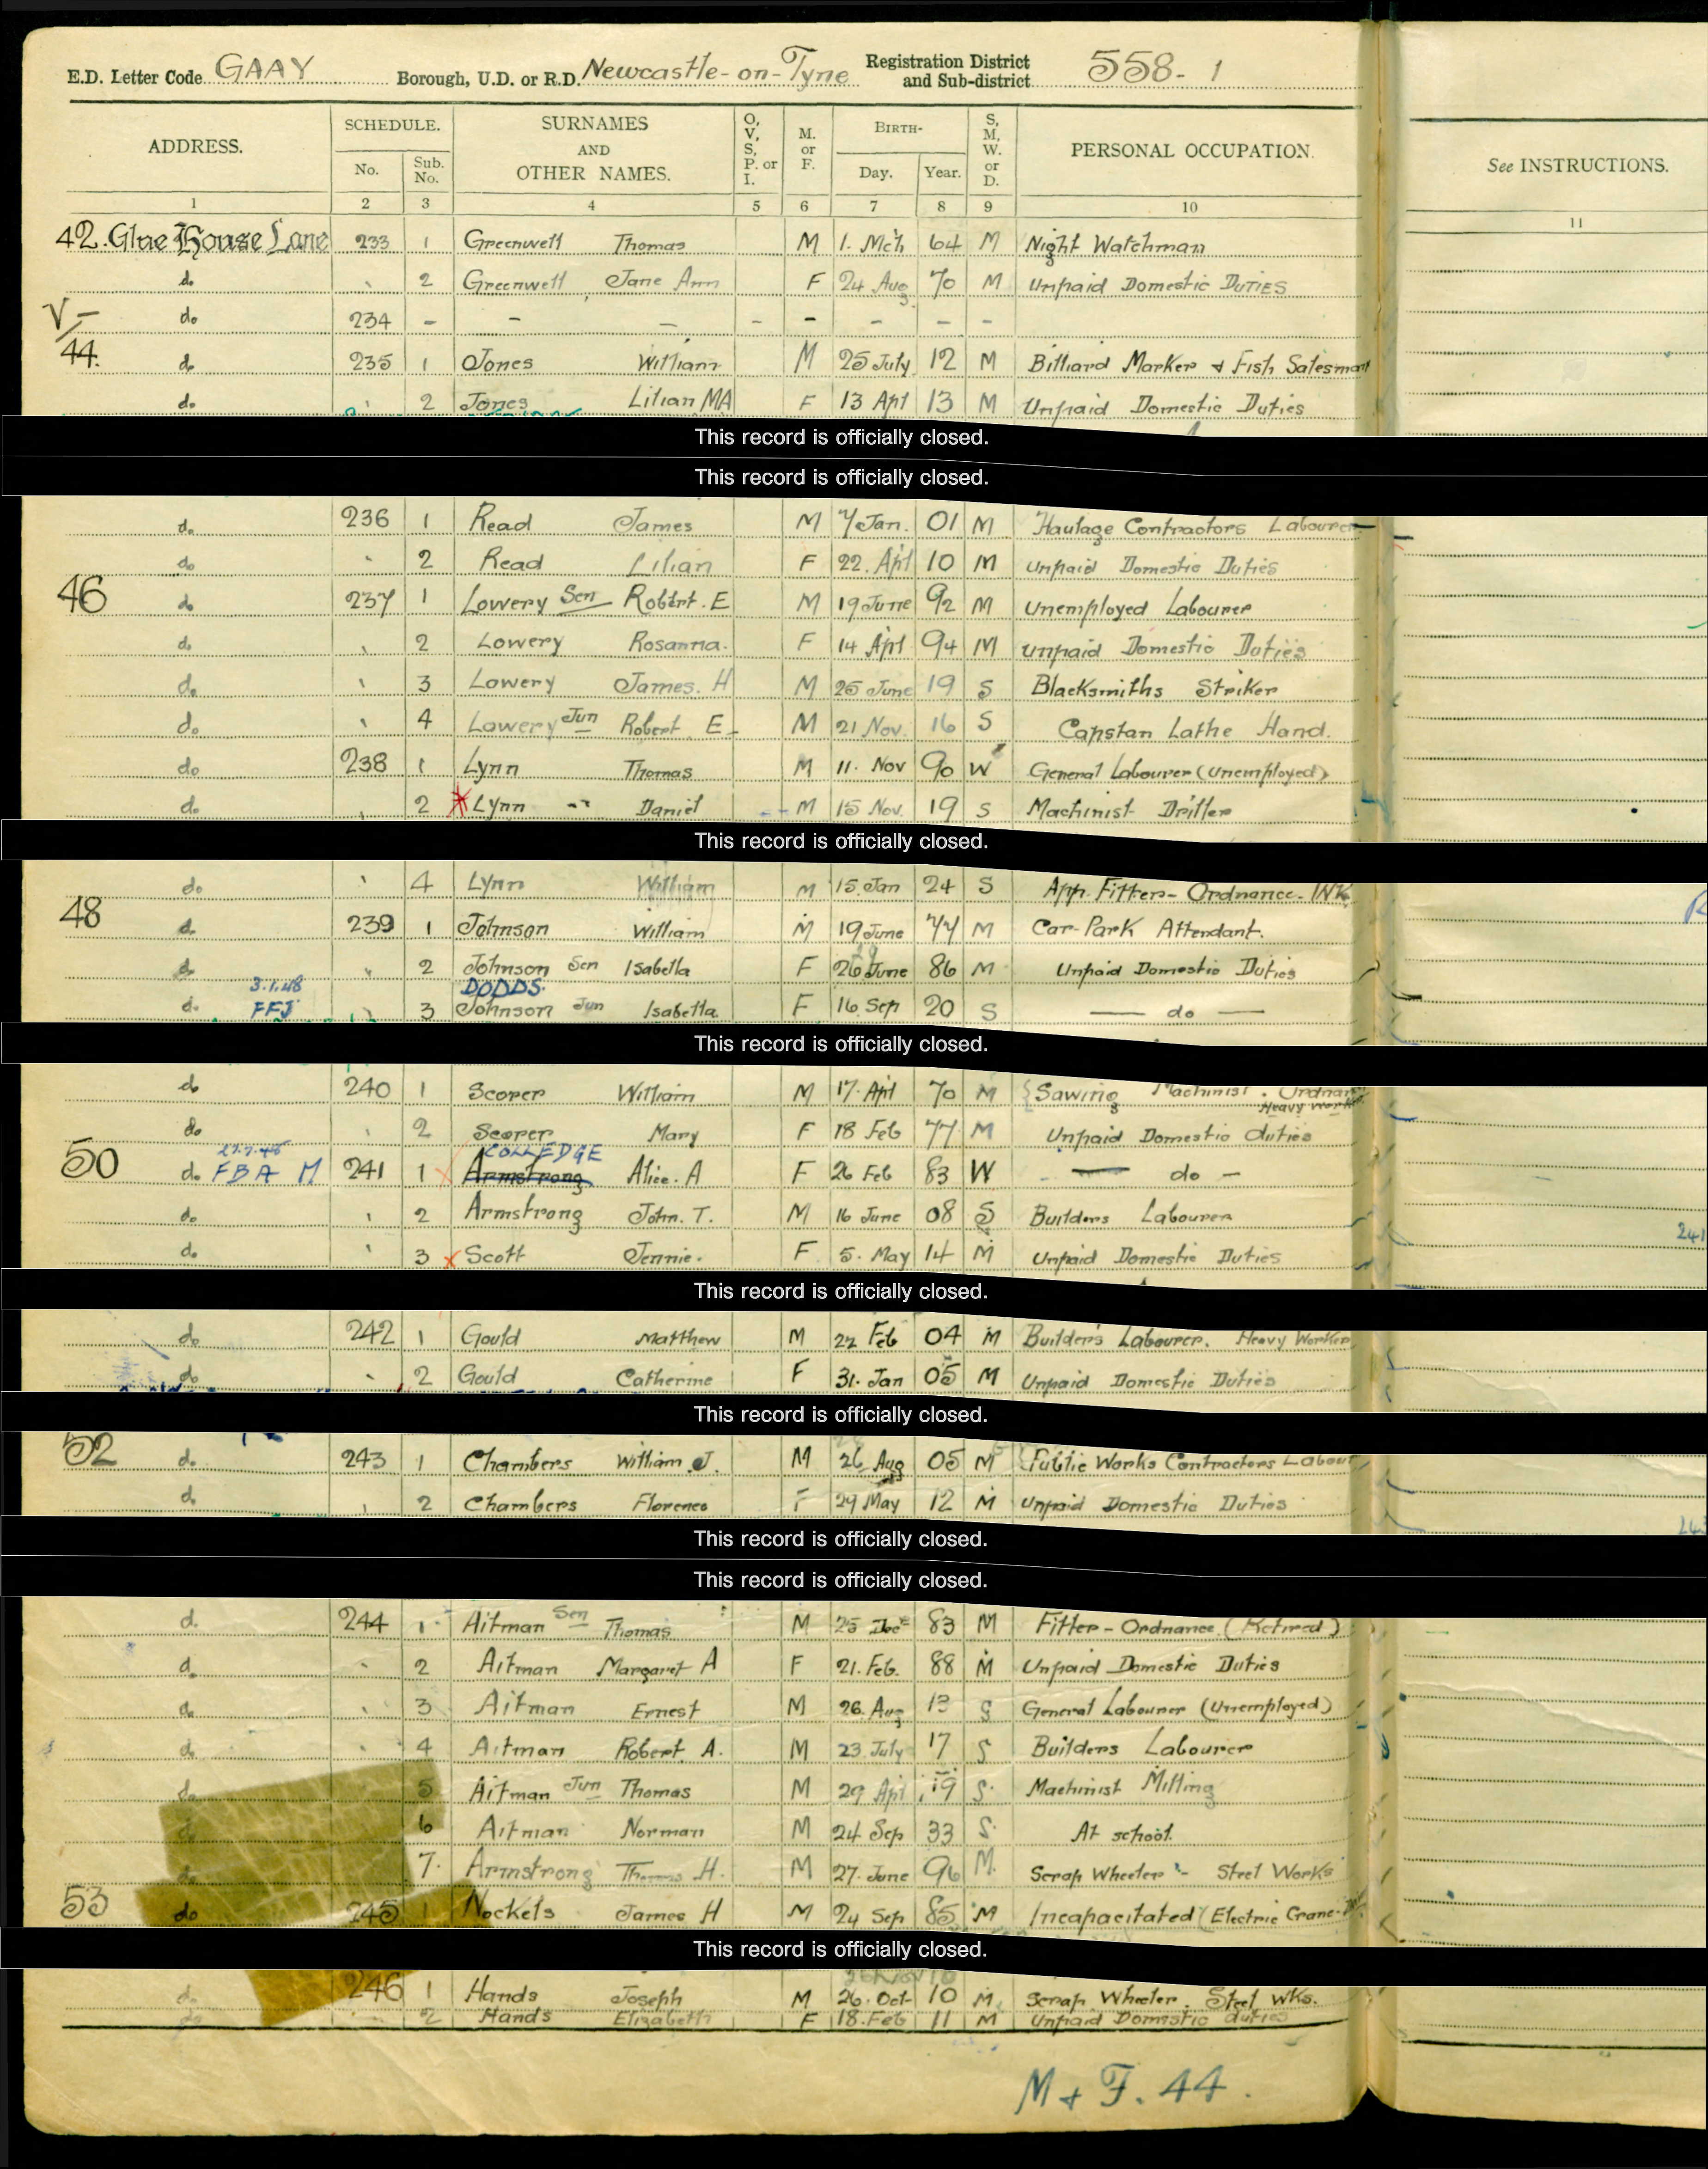 E.D. Letter Code GAAY Borough, U.D. or R.D. Newcastle-on-Tyne Registration District and Sub-district 558-1
ADDRESS. SCHEDULE. No. Sub. No. SURNAMES AND OTHER NAMES. O, V, S, P. or I. M. or F. BIRTH- Day. Year. S, M, W. or D. PERSONAL OCCUPATION. See INSTRUCTIONS.
1 2 3 4 5 6 7 8 9 10 11
42. Glue House Lane 233 1 Greenwell Thomas M 1. Mch 64 M Night Watchman
do 2 Greenwell Jane Ann F 24 Aug 70 M Unpaid Domestic Duties
V - do 234 - - - - - - - -
44. do 235 1 Jones William M 25 July 12 M Billiard Marker & Fish Salesman
do 2 Jones Lilian MA F 13 Apl 13 M Unpaid Domestic Duties
This record is officially closed.
This record is officially closed.
do 236 1 Read James M 7 Jan. 01 M Haulage Contractors Labourer
do 2 Read Lilian F 22. Apl 10 M Unpaid Domestic Duties
46 do 237 1 Lowery Sen Robert. E M 19 June 92 M Unemployed Labourer
do 2 Lowery Rosanna. F 14 Apl 94 M Unpaid Domestic Duties
do 3 Lowery James. H M 25 June 19 S Blacksmiths Striker
do 4 Lowery Jun Robert E M 21 Nov. 16 S Capstan Lathe Hand.
do 238 1 Lynn Thomas M 11. Nov 90 W General Labourer (Unemployed)
do 2 Lynn Daniel M 15 Nov. 19 S Machinist Driller
This record is officially closed.
do 4 Lynn William M 15. Jan 24 S App. Fitter- Ordnance-
48 do 239 1 Johnson William M 19 June 77 M Car-Park Attendant.
do 2 Johnson Sen Isabella F 26 June 86 M Unpaid Domestic Duties
3.1.48 DODDS
do FFJ 3 Johnson Jun Isabella F 16. Sep 20 S — do —
This record is officially closed.
do 240 1 Scorer William M 17. Apl 70 M Sawing Machinist. Ordnan
Heavy Work
do 2 Scorer Mary F 18 Feb 77 M Unpaid Domestic duties
COLLEDGE
50 do FBA M 241 1 Armstrong Alice. A F 26 Feb 83 W — do —
do 2 Armstrong John. T. M 16 June 08 S Builders Labourer
do 3 Scott Jennie. F 5. May 14 M Unpaid Domestic Duties
This record is officially closed.
do 242 1 Gould Matthew M 22 Feb 04 M Builder's Labourer. Heavy Worker
do 2 Gould Catherine F 31. Jan 05 M Unpaid Domestic Duties
This record is officially closed.
52 do 243 1 Chambers William J. M 26 Aug 05 M Public Works Contractors Labour
do 2 Chambers Florence F 29 May 12 M Unpaid Domestic Duties
This record is officially closed.
This record is officially closed.
do 244 1 Aitman Sen Thomas M 25 Dec 83 M Fitter - Ordnance (Retired)
do 2 Aitman Margaret A F 21. Feb. 88 M Unpaid Domestic Duties
do 3 Aitman Ernest M 26. Aug 13 S General Labourer (Unemployed)
do 4 Aitman Robert A. M 23 July 17 S Builders Labourer
do 5 Aitman Jun Thomas M 29 Apl 19 S. Machinist Milling
do 6 Aitman Norman M 24 Sep 33 S. At school.
do 7. Armstrong Thomas H. M 27. June 96 M. Scrap Wheeler - Steel Works
53 do 245 1 Nockels James H M 24 Sep 85 M Incapacitated (Electric Crane-
This record is officially closed.
do 246 1 Hands Joseph M 26. Oct 10 M. Scrap Wheeler. Steel Wks.
do 2 Hands Elizabeth F 18. Feb 11 M Unpaid Domestic duties
M & F. 44.